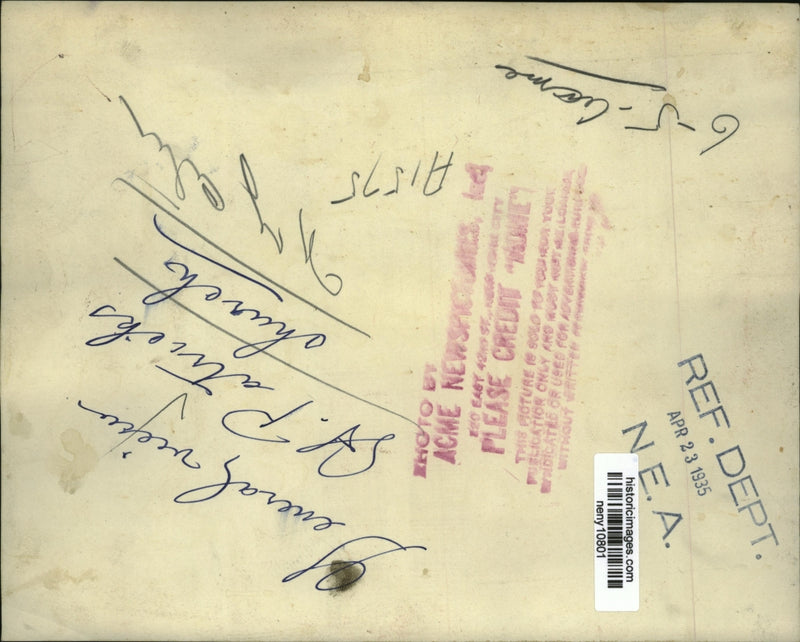 General view
St. Patricks
church
N Y City
A1575
6-5-Acme
PHOTO BY
ACME NEWSPICTURES, Inc.
220 EAST 42ND ST., NEW YORK CITY
PLEASE CREDIT "ACME"
THIS PICTURE IS SOLD TO YOU FOR YOUR
PUBLICATION ONLY AND MUST NOT BE LOANED,
SYNDICATED OR USED FOR ADVERTISING PURPOSES
WITHOUT WRITTEN PERMISSION FROM
REF. DEPT.
APR 23 1935
N. E. A.
historicimages.com
neny10801